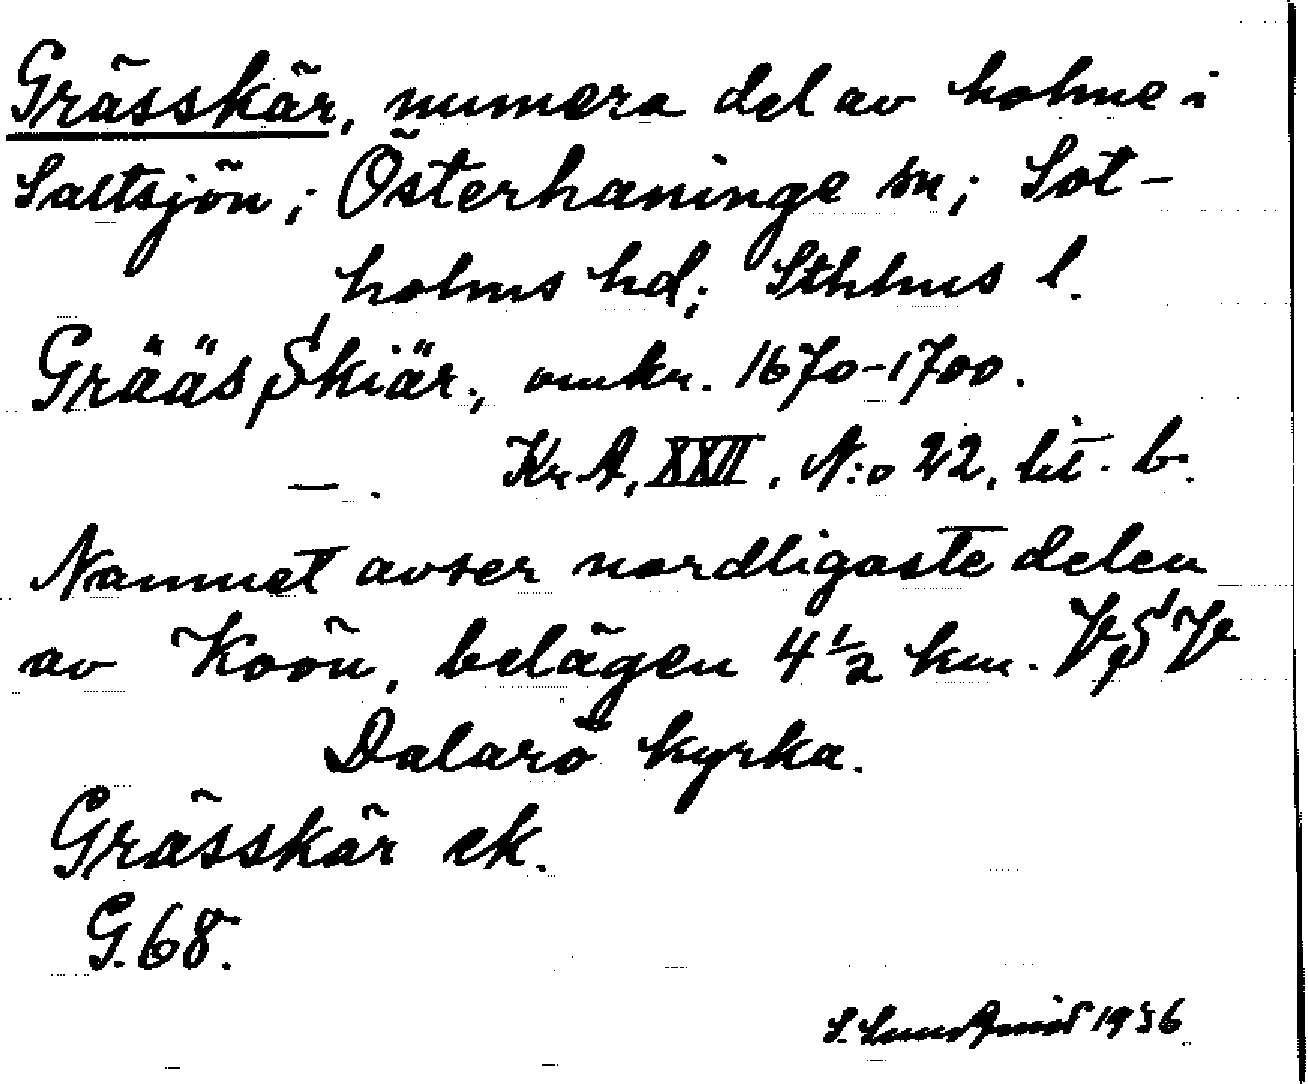 Grässkär, numera del av holme i
Saltsjön; Österhaninge sn; Sot-
holms hd; Sthlms l.
Grääs Skiär., omkr. 1670-1700.
—. Kr. A, XXII. N:o 22. lit. b.
Namnet avser nordligaste delen
av Koön, belägen 4 1/2 km. VSV
Dalarö kyrka.
Grässkär ek.
G. 68.
S. 1936